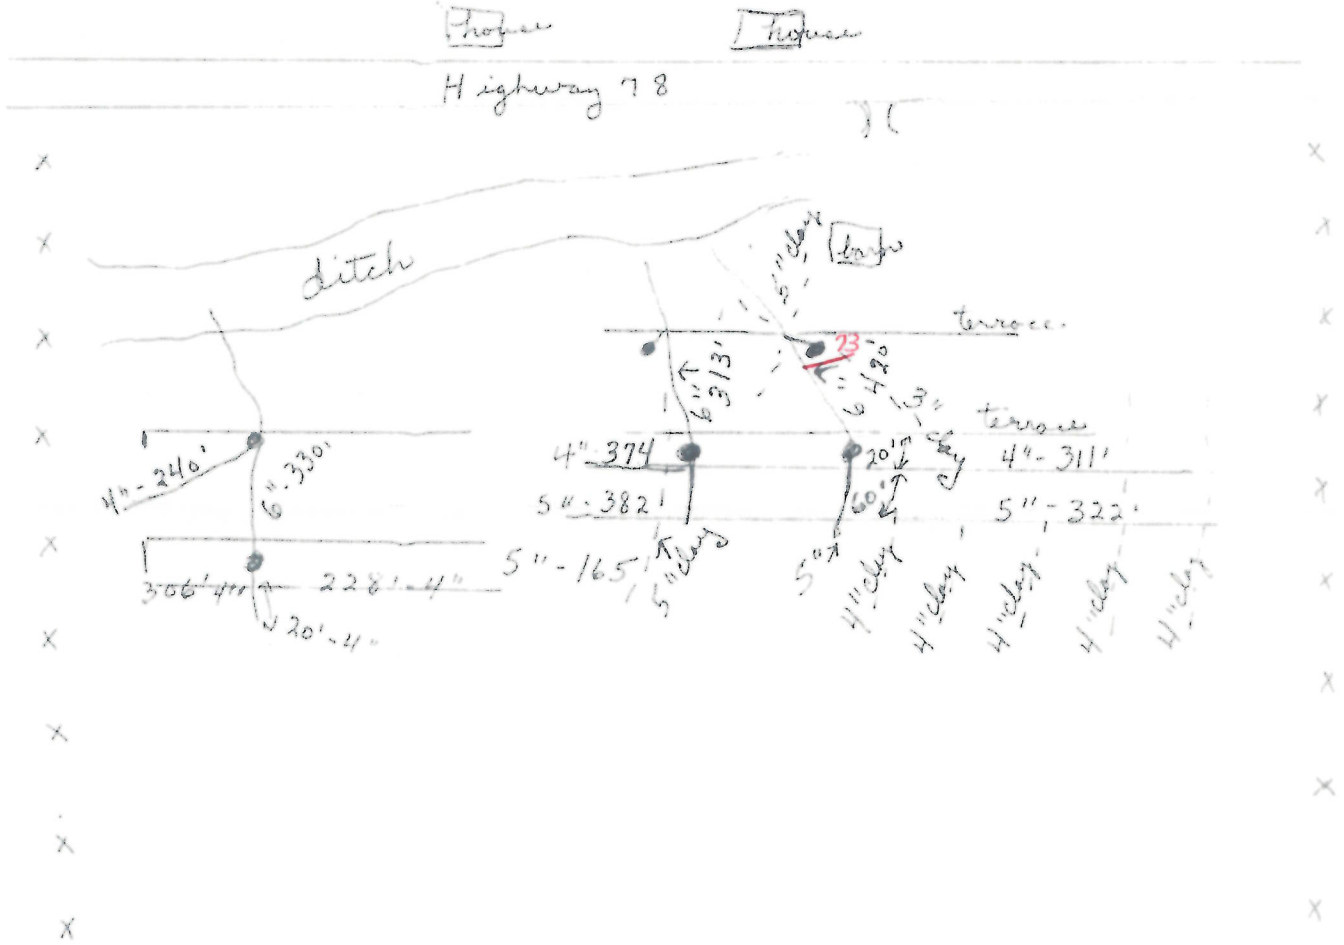 house
house
Highway 78
ditch
5" clay
barn
terrace
73
6" 313'
6" 420'
3" clay
terrace
4"-240'
6"-330'
4"-374
20'
4"-311'
5"-382'
60'
5"-322'
5"-165'
5" clay
5"
306' 4"
228'-4"
20'-4"
4" clay
4" clay
4" clay
4" clay
4" clay